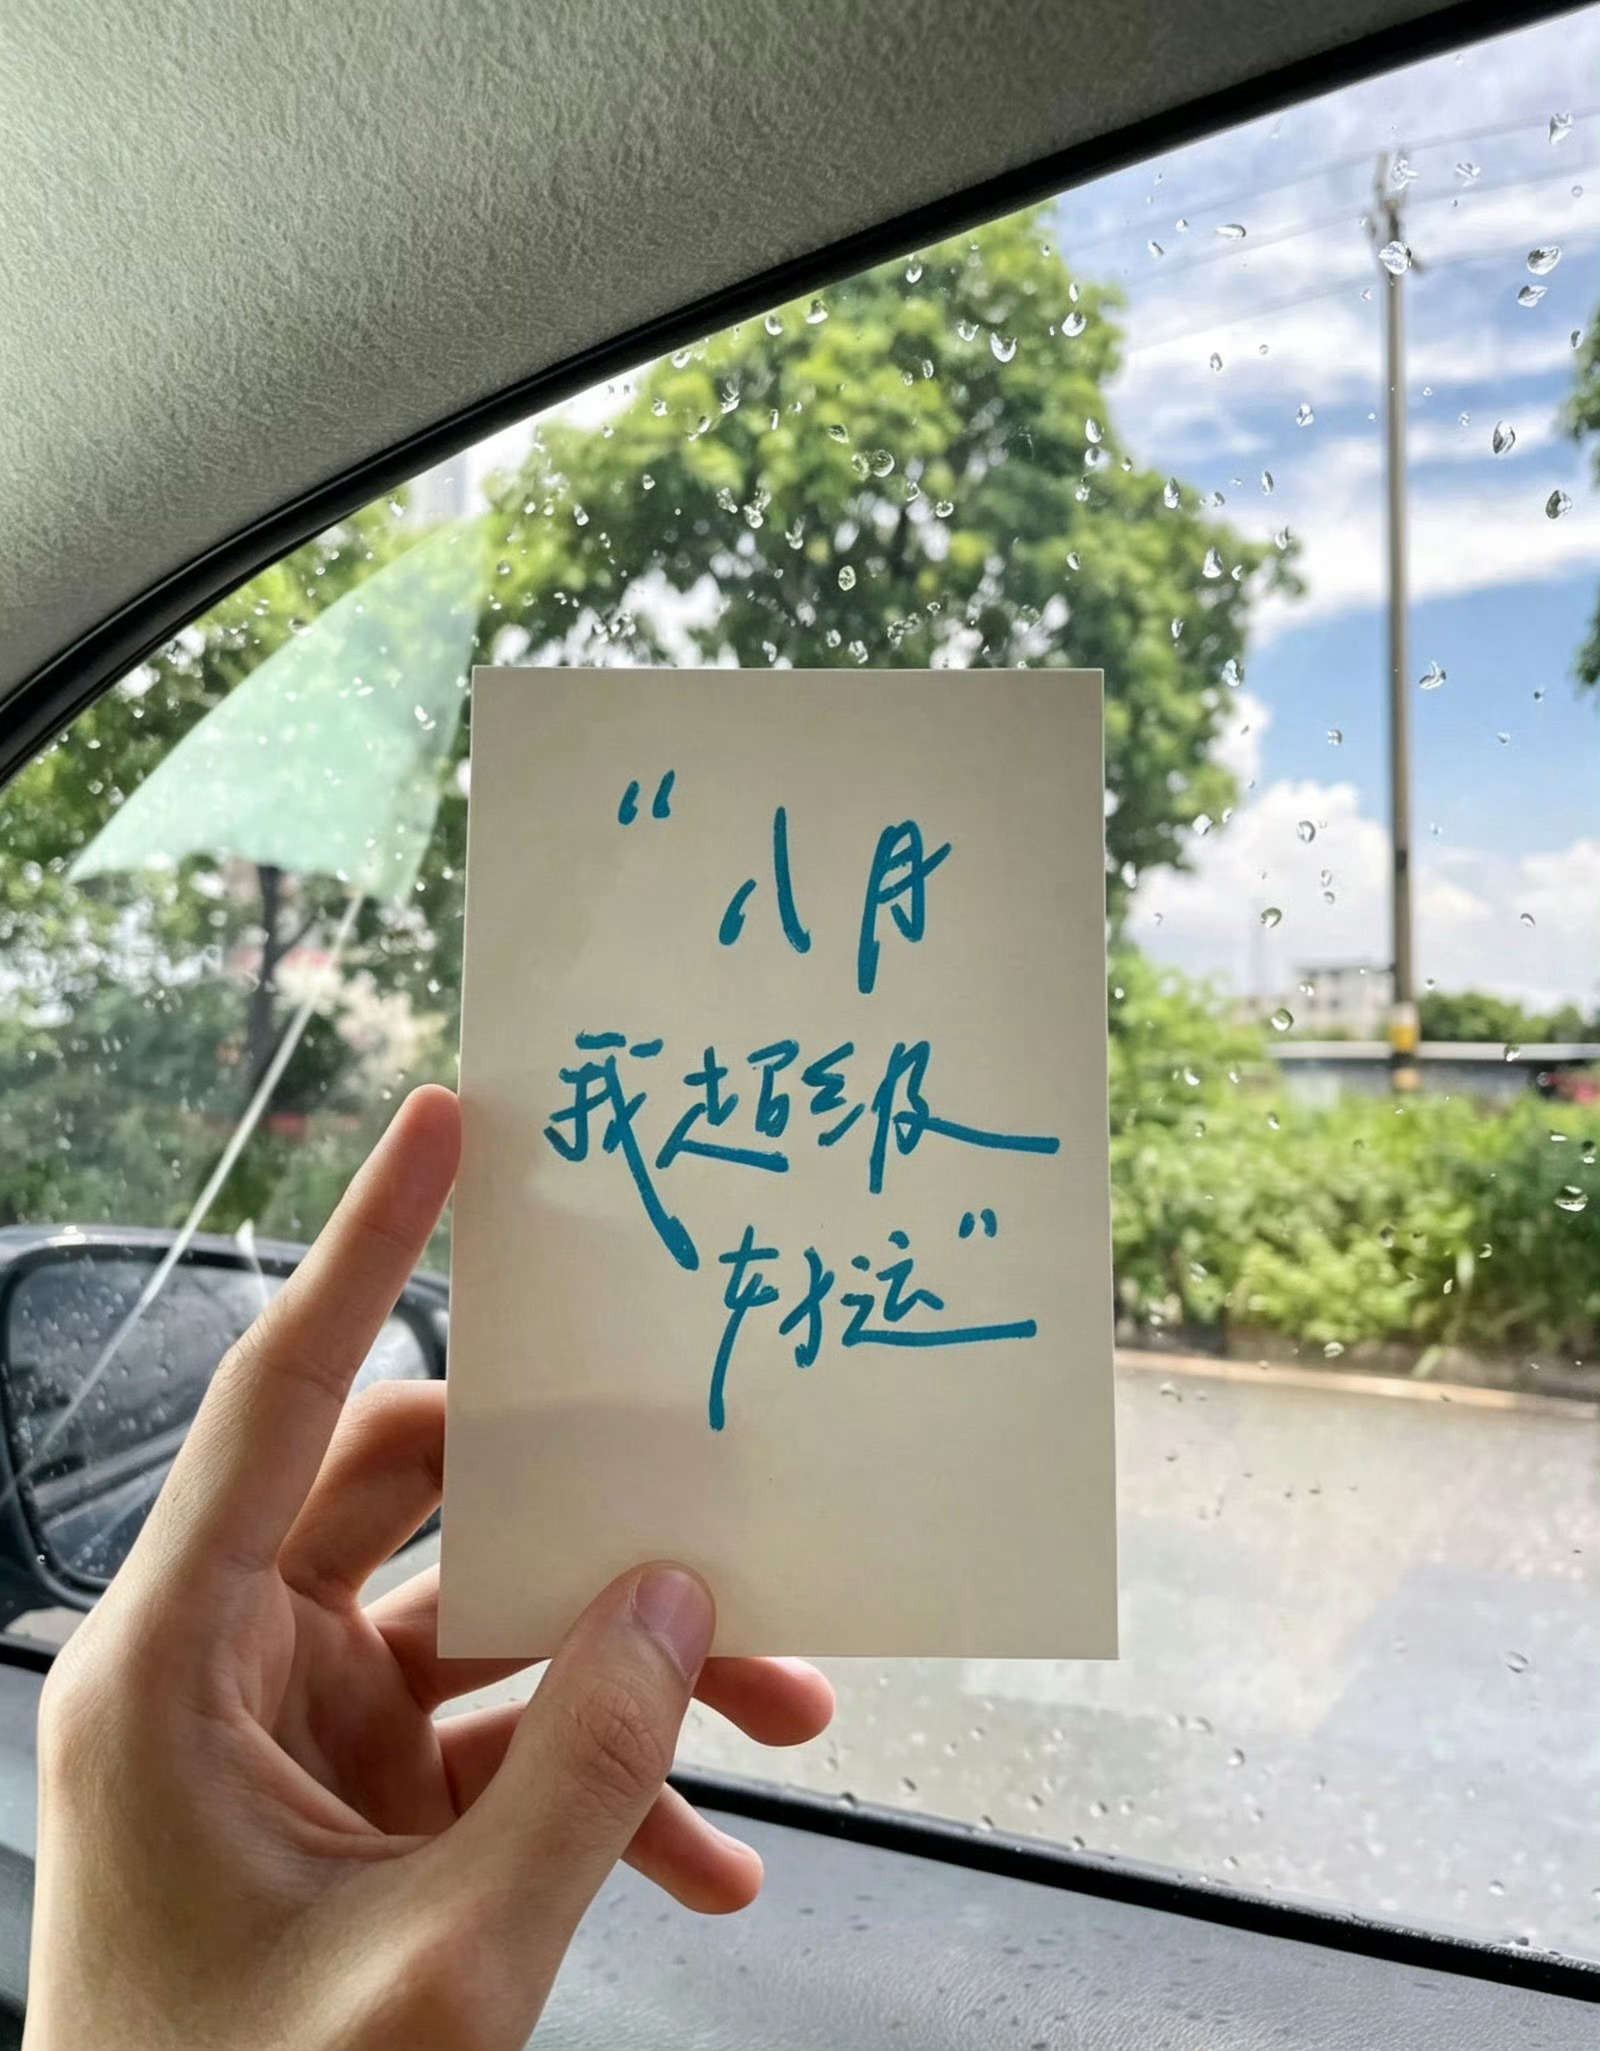 “八月
我超级
好运”